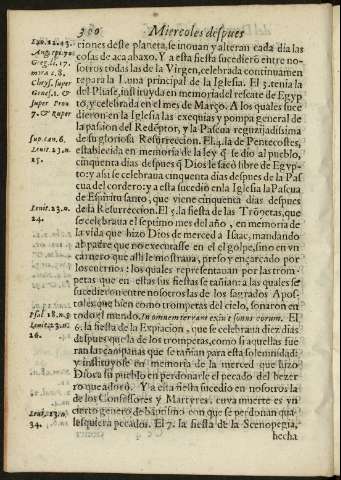 300
Miercoles despues
ciones deste planeta, se inouan y alteran cada dia las
cosas de aca abaxo. Y a esta fiesta sucedieró entre no-
sotros todas las de la Virgen, celebrada continuamen
te para la Luna principal de la Iglesia. El 3. tenia la
del Phase, instituyda en memoria del rescate de Egyp
to, y celebrada en el mes de Março. A los quales suce
dieron en la Iglesia las exequias y pompa general de
la pasion del Redéptor, y la Pascua regozijadissima
de su gloriosa Resurreccion. El 4. la de Pentecostes,
establecida en memoria de la ley q̃ se dio al pueblo,
cinquenta dias despues q̃ Dios le sacò libre de Egyp-
to: y assi se celebraua cinquenta dias despues de la Pas
cua del cordero: y a esta sucedio en la Iglesia la Pascua
de Espiritu santo, que viene cinquenta dias despues
de la Resurreccion. El 5. la fiesta de las Trõpetas, que
se celebraua el septimo mes del año, en memoria de
la vida que hizo Dios de merced a Isaac, mandando
al padre que no executasse en el el golpe, sino en vn
carnero que alli le mostraua, preso y ençarçado por
los cuernos: los quales representauan por las trom-
petas que en estas sus fiestas se tañian: a las quales se
sucedieron entre nosotros las de los sagrados Apos-
toles que bien como trompetas del cielo, sonaron en
todo el mundo. In omnem terram exiuit sonus eorum. El
6. la fiesta de la Expiacion, que se celebraua diez dias
despues que la de los trompetas, como si aquellas fue
ran las campanas que se tañian para esta solemnidad:
y instituyose en memoria de la merced que hizo
Dios a su pueblo en perdonarle el pecado del bezer
ro que adorò. Y a esta fiesta sucedio en nosotros la
de los Confessores y Martyres, cuya muerte es vn
cierto genero de baptismo con que se perdonan qua-
lesquiera pecados. El 7. la fiesta de la Scenopegia,
hecha
Greg. li. 17.
mora c. 8.
Chrys. super
Genes. 1. &
super Pron
7. & Ruper
Sup. can. 6.
Leuit. 23. n.
25.
Leuit. 23. n.
24.
Psal. 18. n. 5
Leuit. 23. n.
26.
Leuit. 23. n.
34.